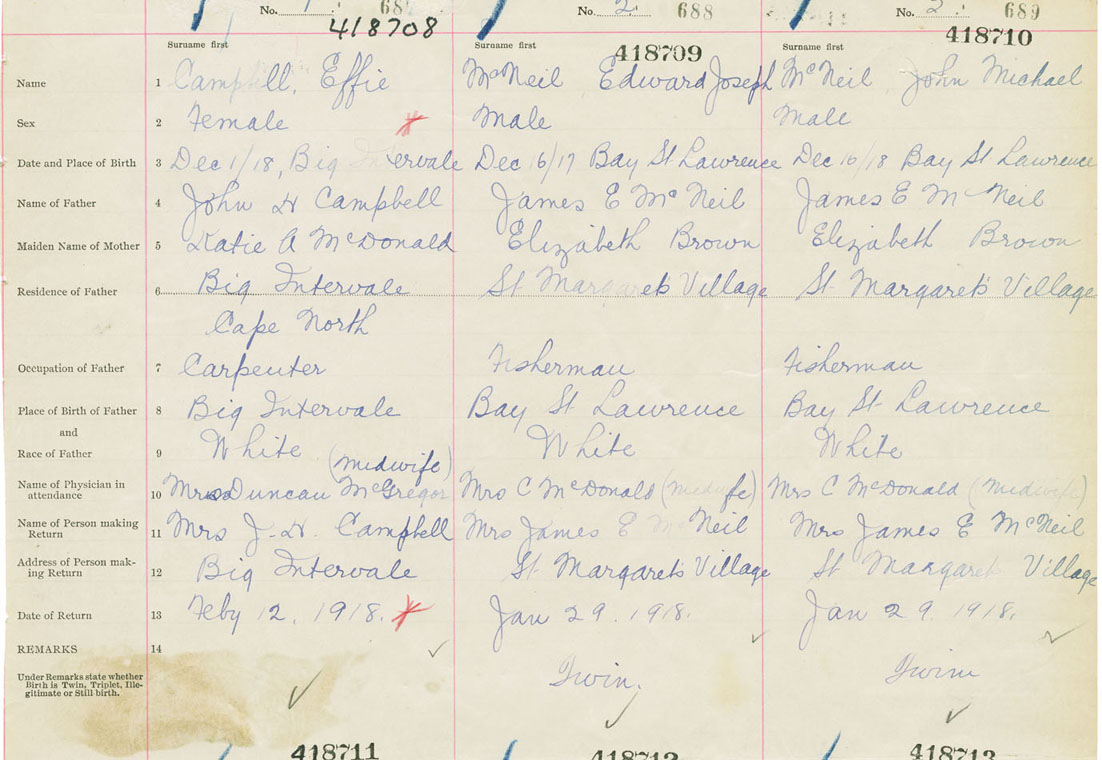 No. 1. 68
No. 2. 688
No. 3. 689
418708
418709
418710
Surname first
Surname first
Surname first
Name 1 Campbell, Effie McNeil Edward Joseph McNeil John Michael
Sex 2 Female Male Male
Date and Place of Birth 3 Dec 1/18, Big Intervale Dec 16/17 Bay St Lawrence Dec 16/18 Bay St Lawrence
Name of Father 4 John H Campbell James E McNeil James E McNeil
Maiden Name of Mother 5 Katie A McDonald Elizabeth Brown Elizabeth Brown
Residence of Father 6 Big Intervale St Margarets Village St Margarets Village
Cape North
Occupation of Father 7 Carpenter Fisherman Fisherman
Place of Birth of Father 8 Big Intervale Bay St Lawrence Bay St Lawrence
and
Race of Father 9 White White White
(midwife)
Name of Physician in attendance 10 Mrs Duncan McGregor Mrs C McDonald (midwife) Mrs C McDonald (midwife)
Name of Person making Return 11 Mrs J. H. Campbell Mrs James E McNeil Mrs James E McNeil
Address of Person making Return 12 Big Intervale St Margarets Village St Margarets Village
Date of Return 13 Feby 12, 1918. Jan 29. 1918. Jan 29. 1918.
REMARKS 14
Under Remarks state whether
Birth is Twin, Triplet, Ille-
gitimate or Still birth.
Twin. Twin
418711 418712 418713